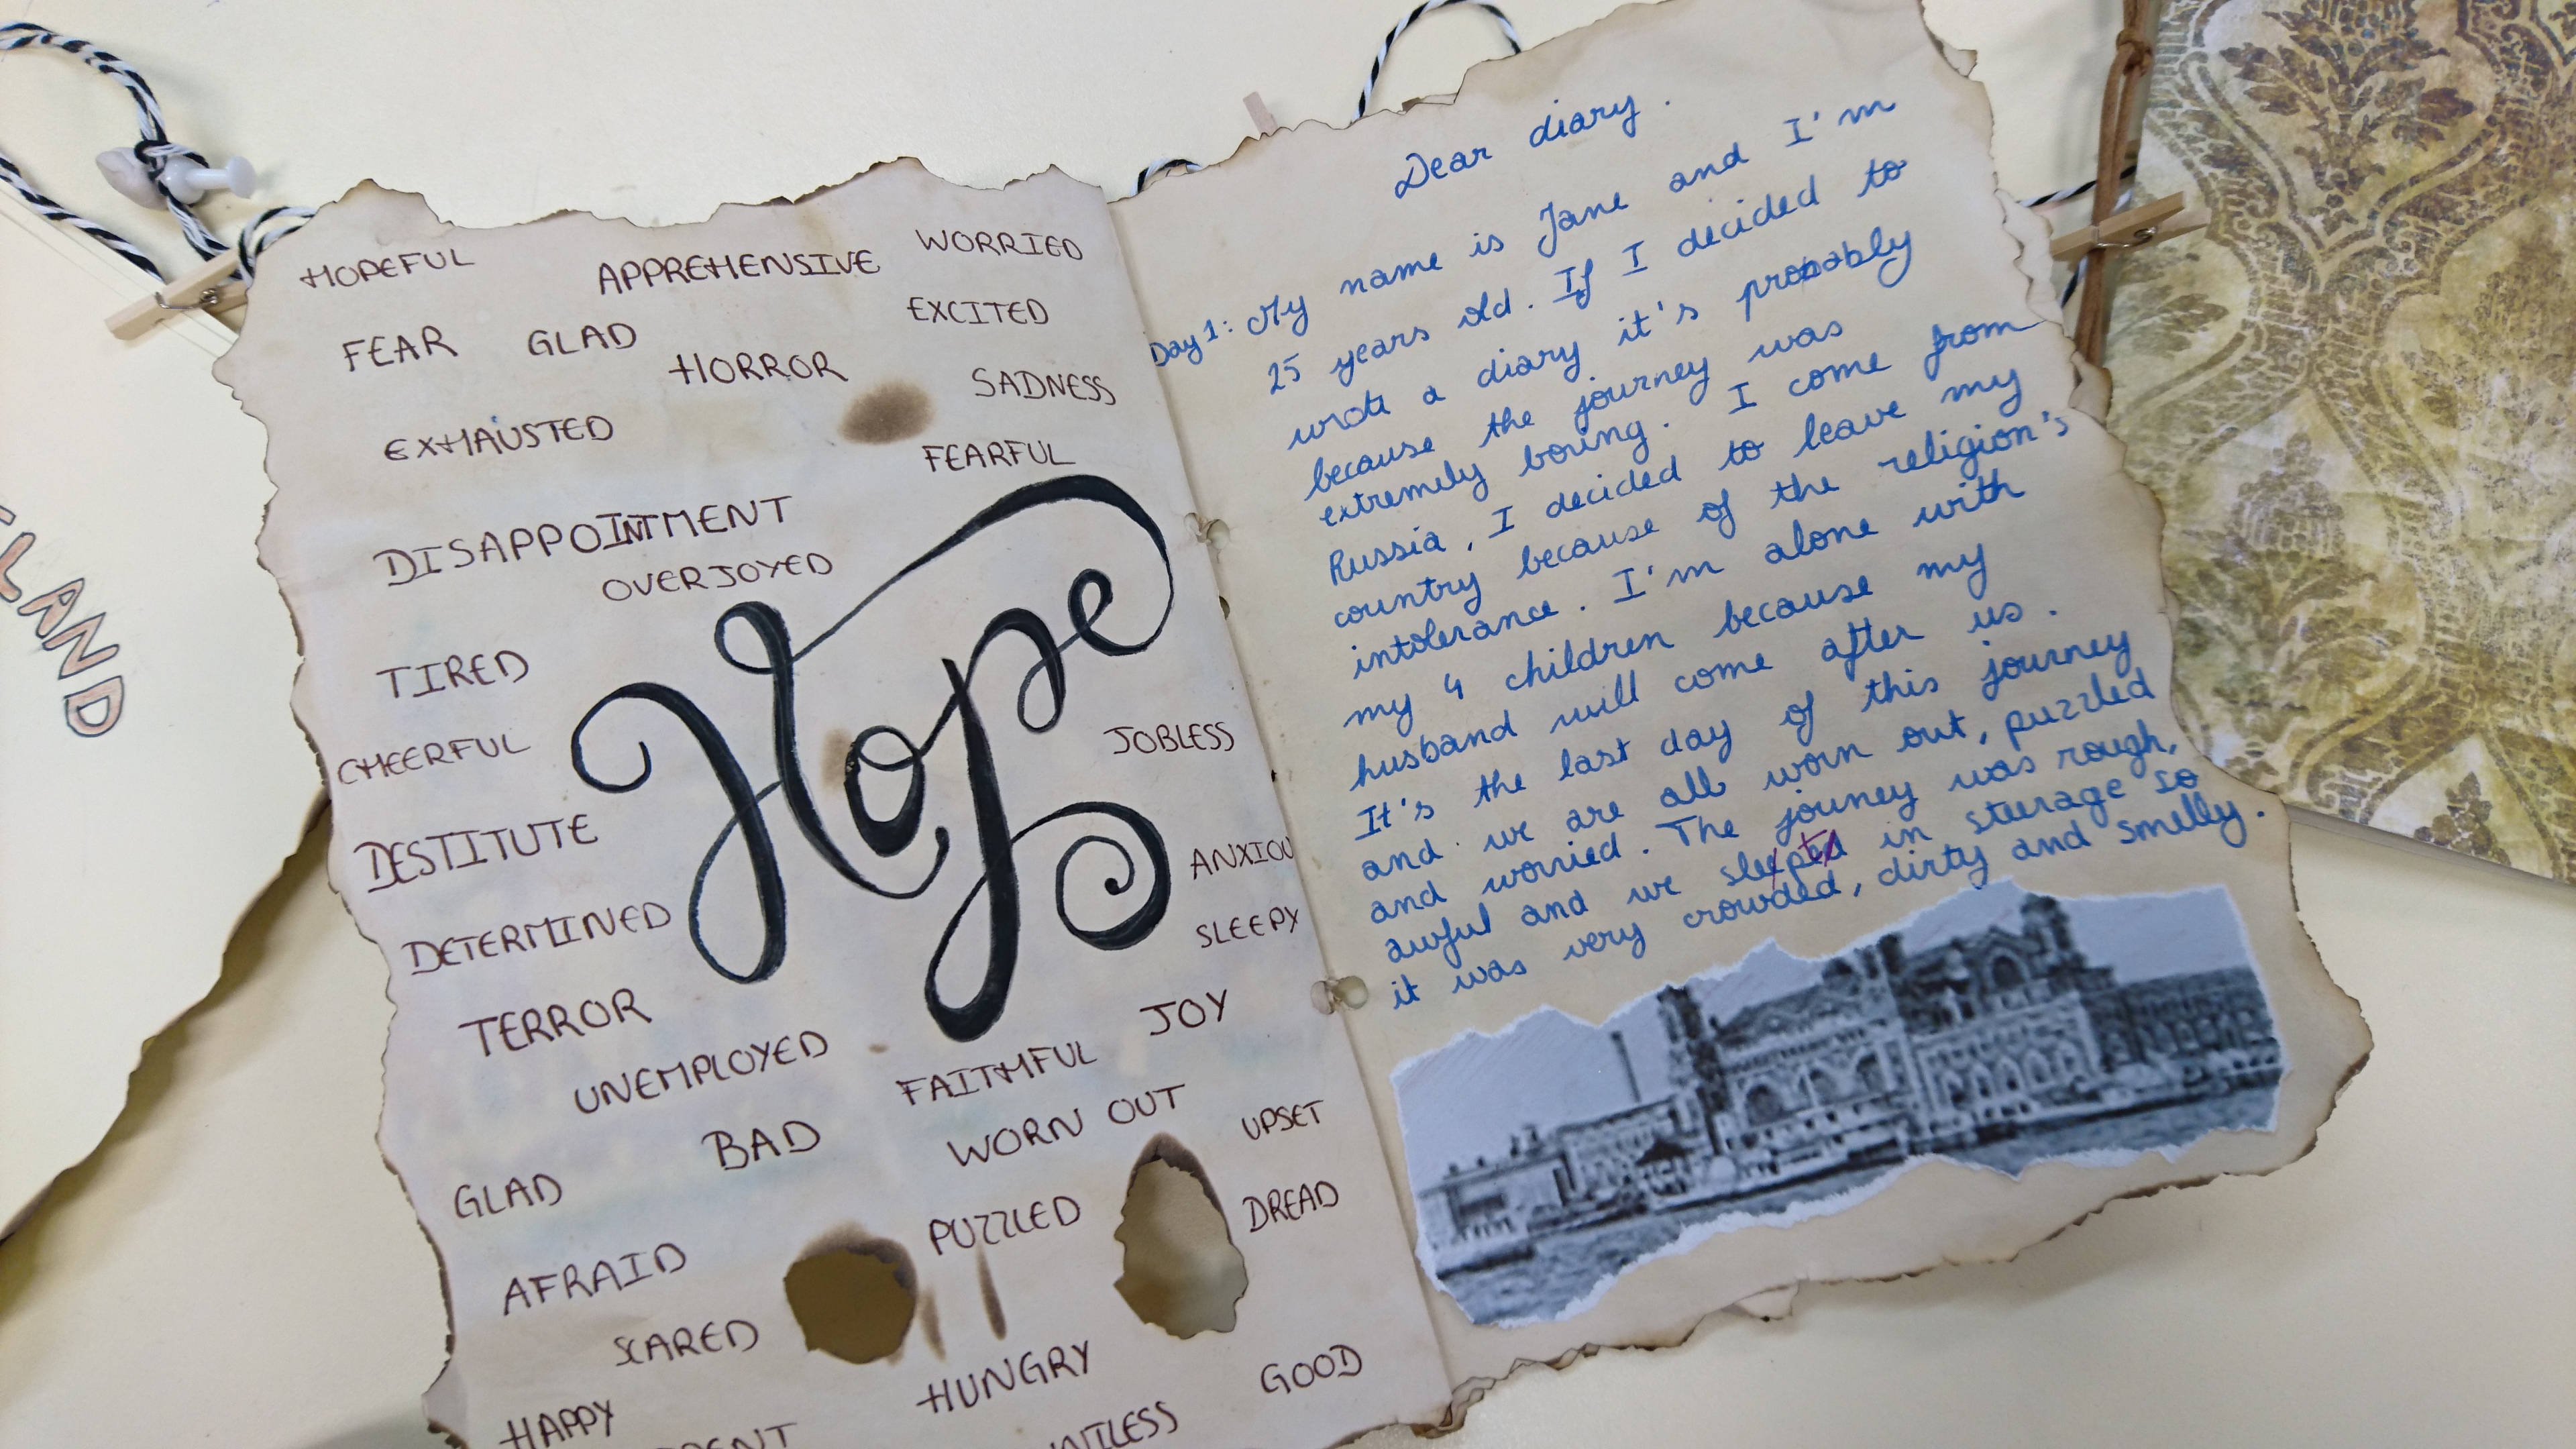 LAND
HOPEFUL APPREHENSIVE WORRIED
FEAR GLAD EXCITED
HORROR SADNESS
EXHAUSTED FEARFUL
DISAPPOINTMENT
OVERJOYED
Hope
TIRED
CHEERFUL JOBLESS
DESTITUTE ANXIOU
DETERMINED SLEEPY
TERROR JOY
UNEMPLOYED FAITHFUL
BAD WORN OUT UPSET
GLAD PUZZLED DREAD
AFRAID
SCARED HUNGRY GOOD
HAPPY
Dear diary.
Day 1: My name is Jane and I'm
25 years old. If I decided to
wrote a diary it's probably
because the journey was
extremely boring. I come from
Russia, I decided to leave my
country because of the religion's
intolerance. I'm alone with
my 4 children because my
husband will come after us.
It's the last day of this journey
and we are all worn out, puzzled
and worried. The journey was rough,
awful and we in steerage so
it was very crowded, dirty and smelly.